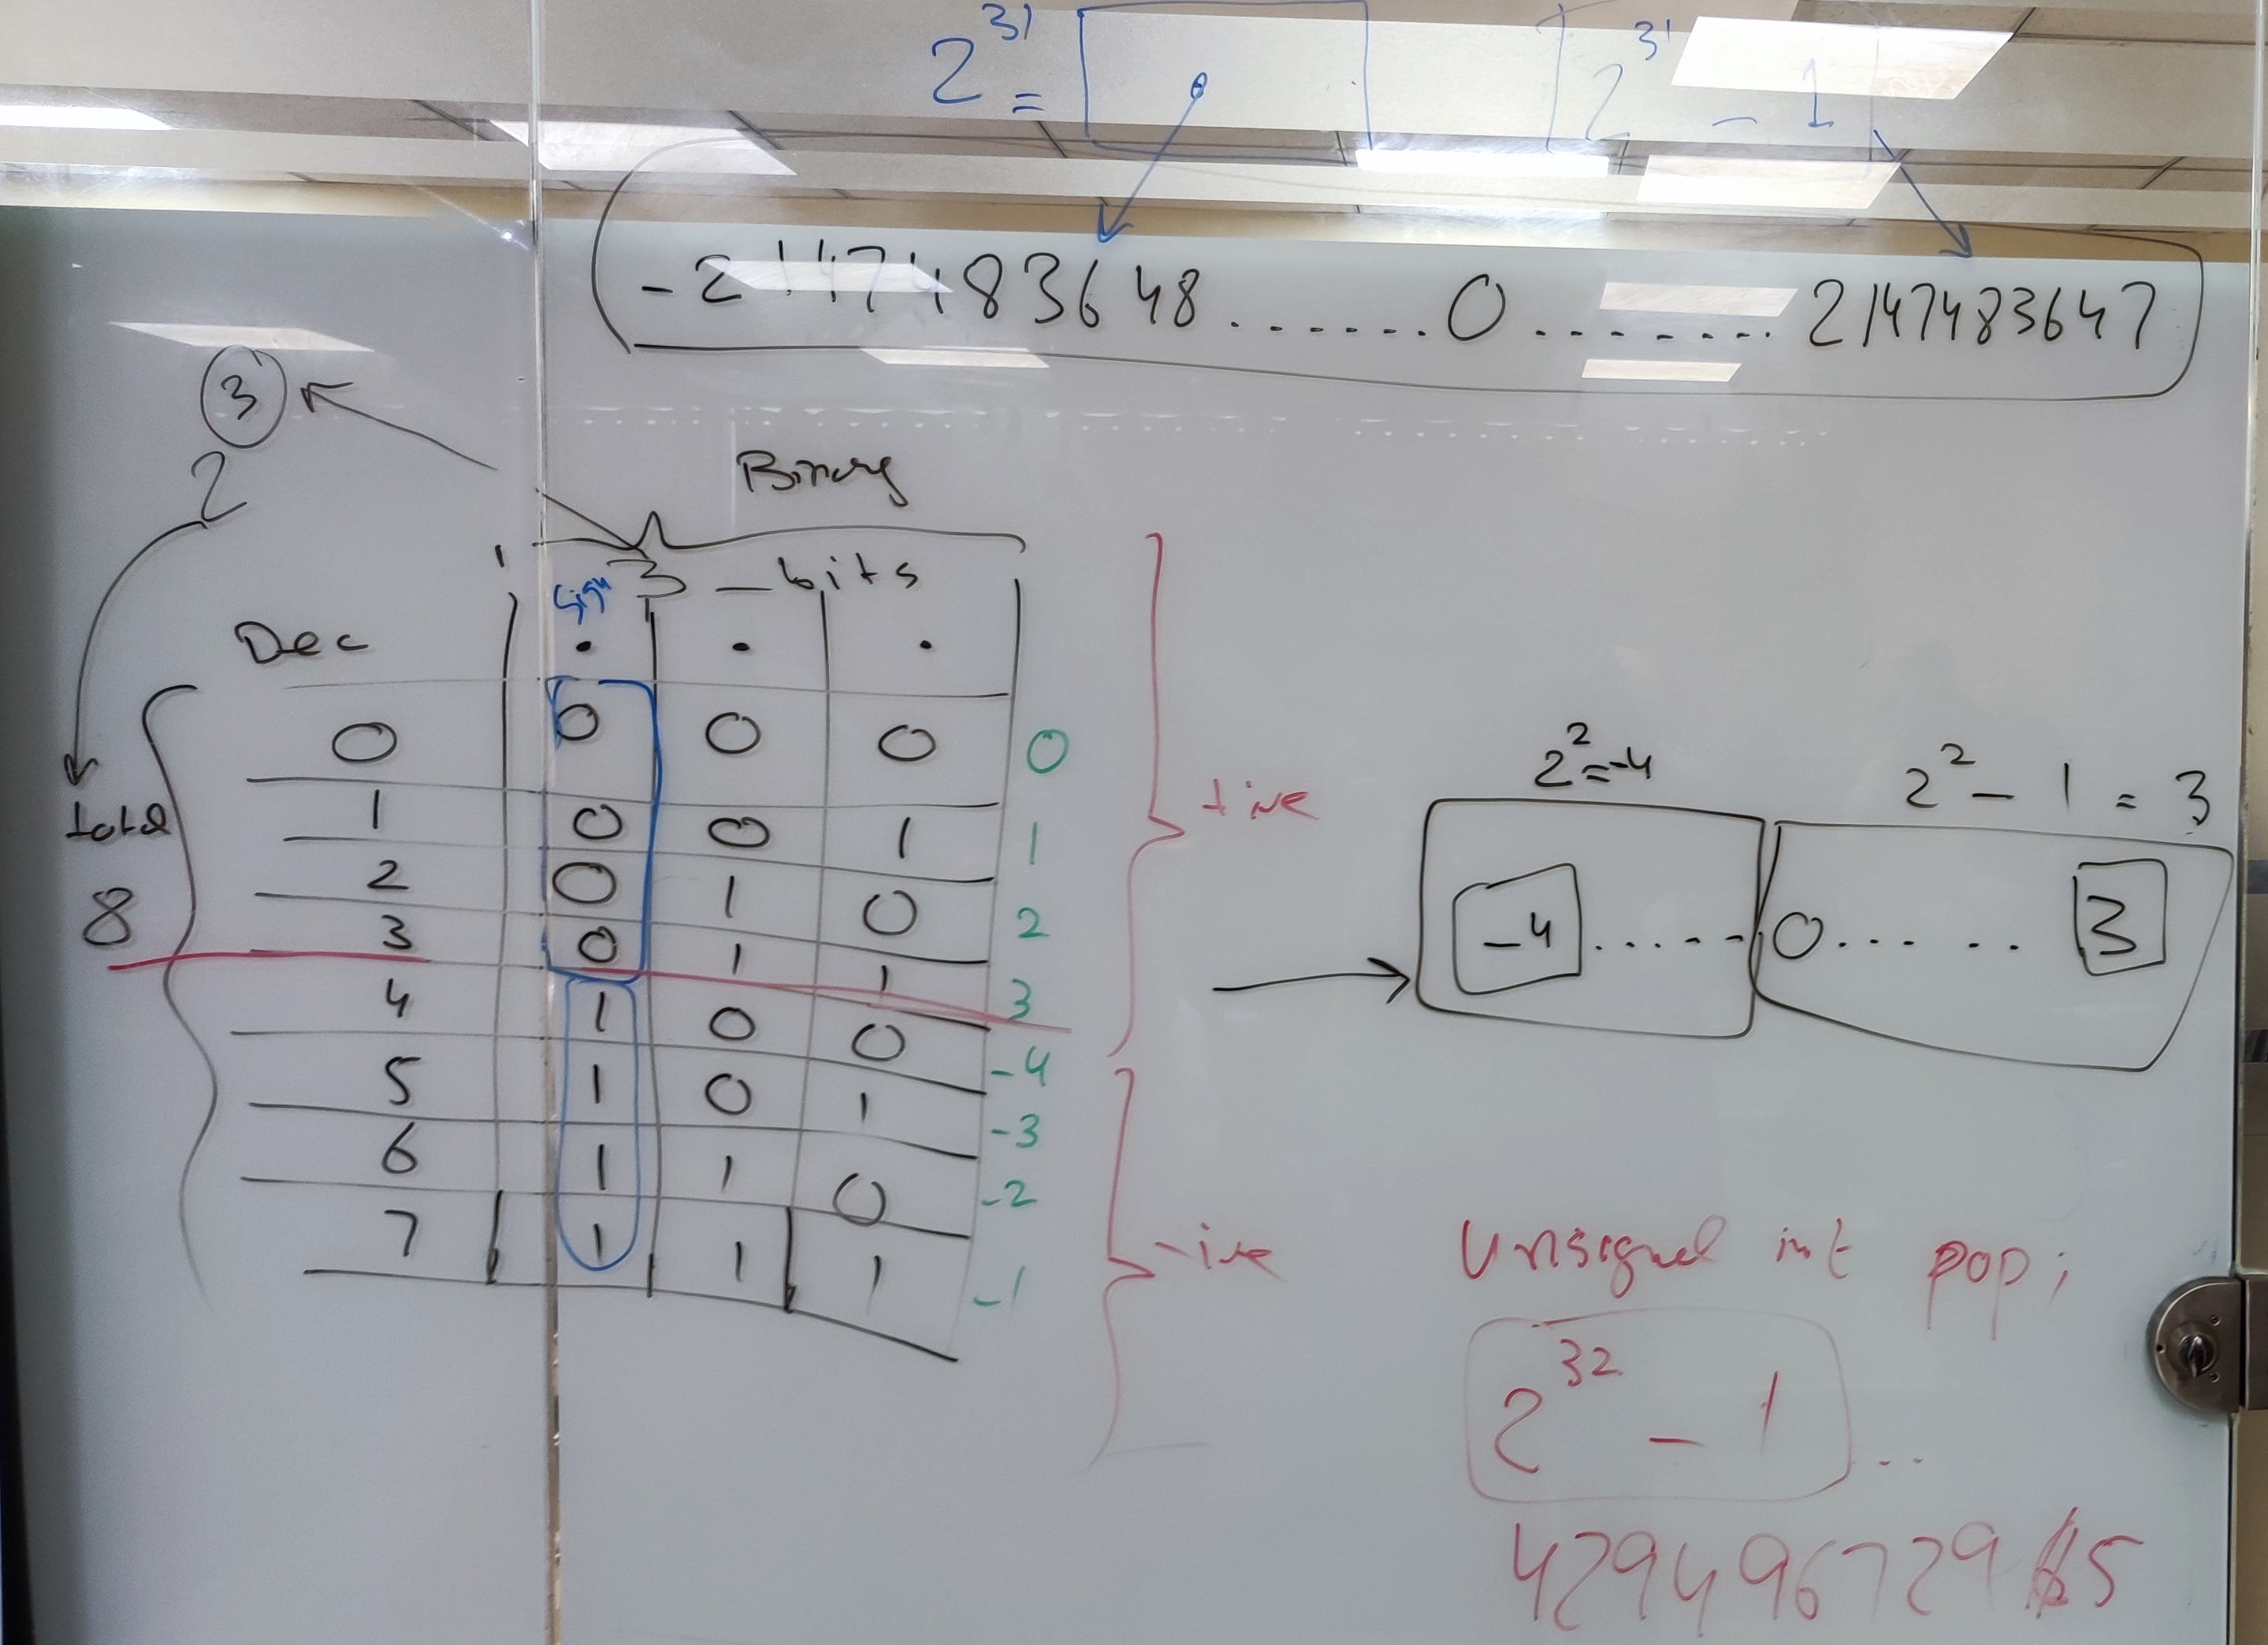 2^31 = 2^31 - 1
-2147483648.......0........2147483647
3
2
Binary
3 - bits
sign
Dec
0 0 0 0 0
total 1 0 0 1 1
+ive
2 0 1 0 2
8
3 0 1 1 3
4 1 0 0 -4
5 1 0 1 -3
6 1 1 0 -2
7 1 1 1 -1
-ive
2^2=-4 2^2 - 1 = 3
-4 ...... 0 .... .. 3
Unsigned int pop;
2^32 - 1 ..
4294967295